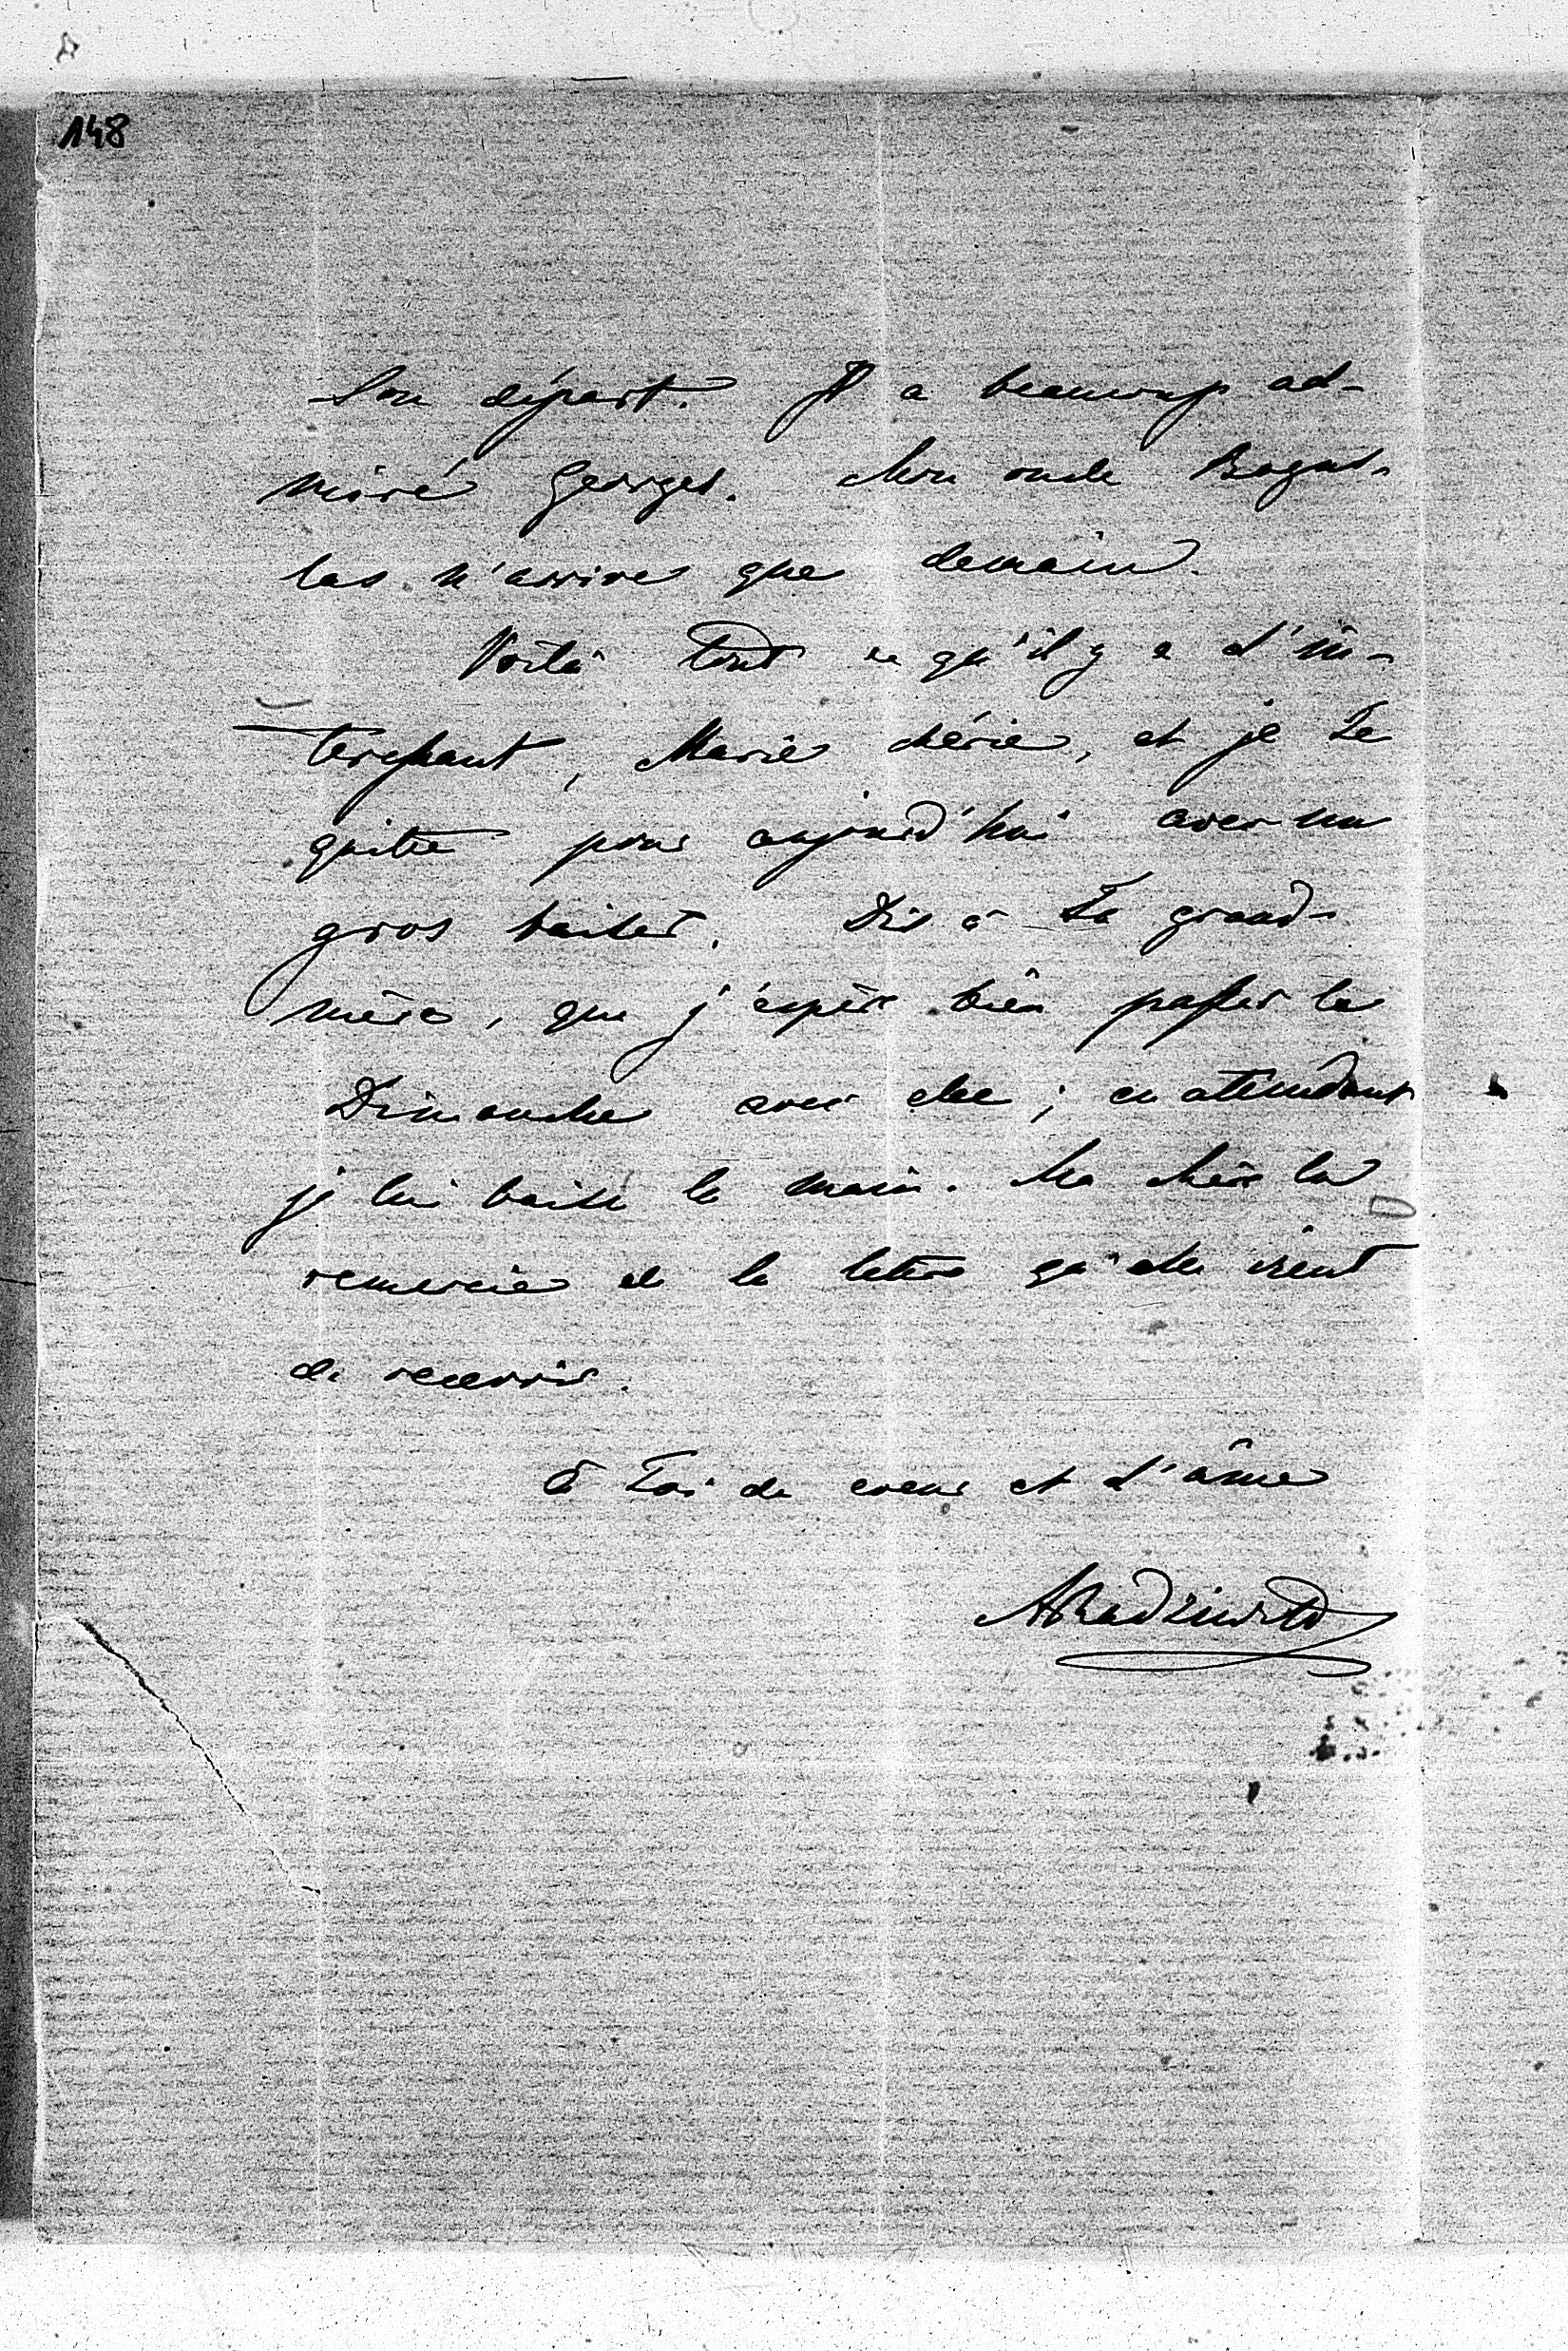 148
son départ. Il a beaucoup ad-
miré Georges. Mon oncle Bogus-
las n'arrive que demain.
Voilà tout ce qu'il y a d'in-
teressant, Marie chérie, et je Te
quitte pour aujourd'hui avec un
gros baiser. Dis à Ta grand-
mère, que j'espère bien passer le
Dimanche avec elle ; en attendant
je lui baise la main. Ma mère la
remercie de la lettre qu'elle vient
de recevoir.
à Toi de coeur et d'âme
ARadziwill